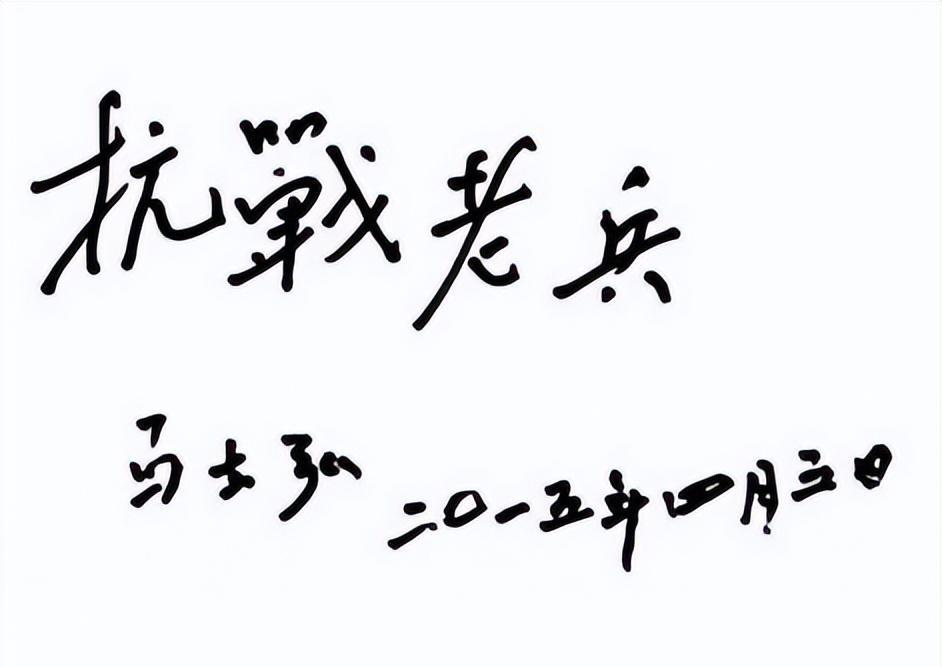 抗戰老兵
马士弘 二〇一五年四月三日